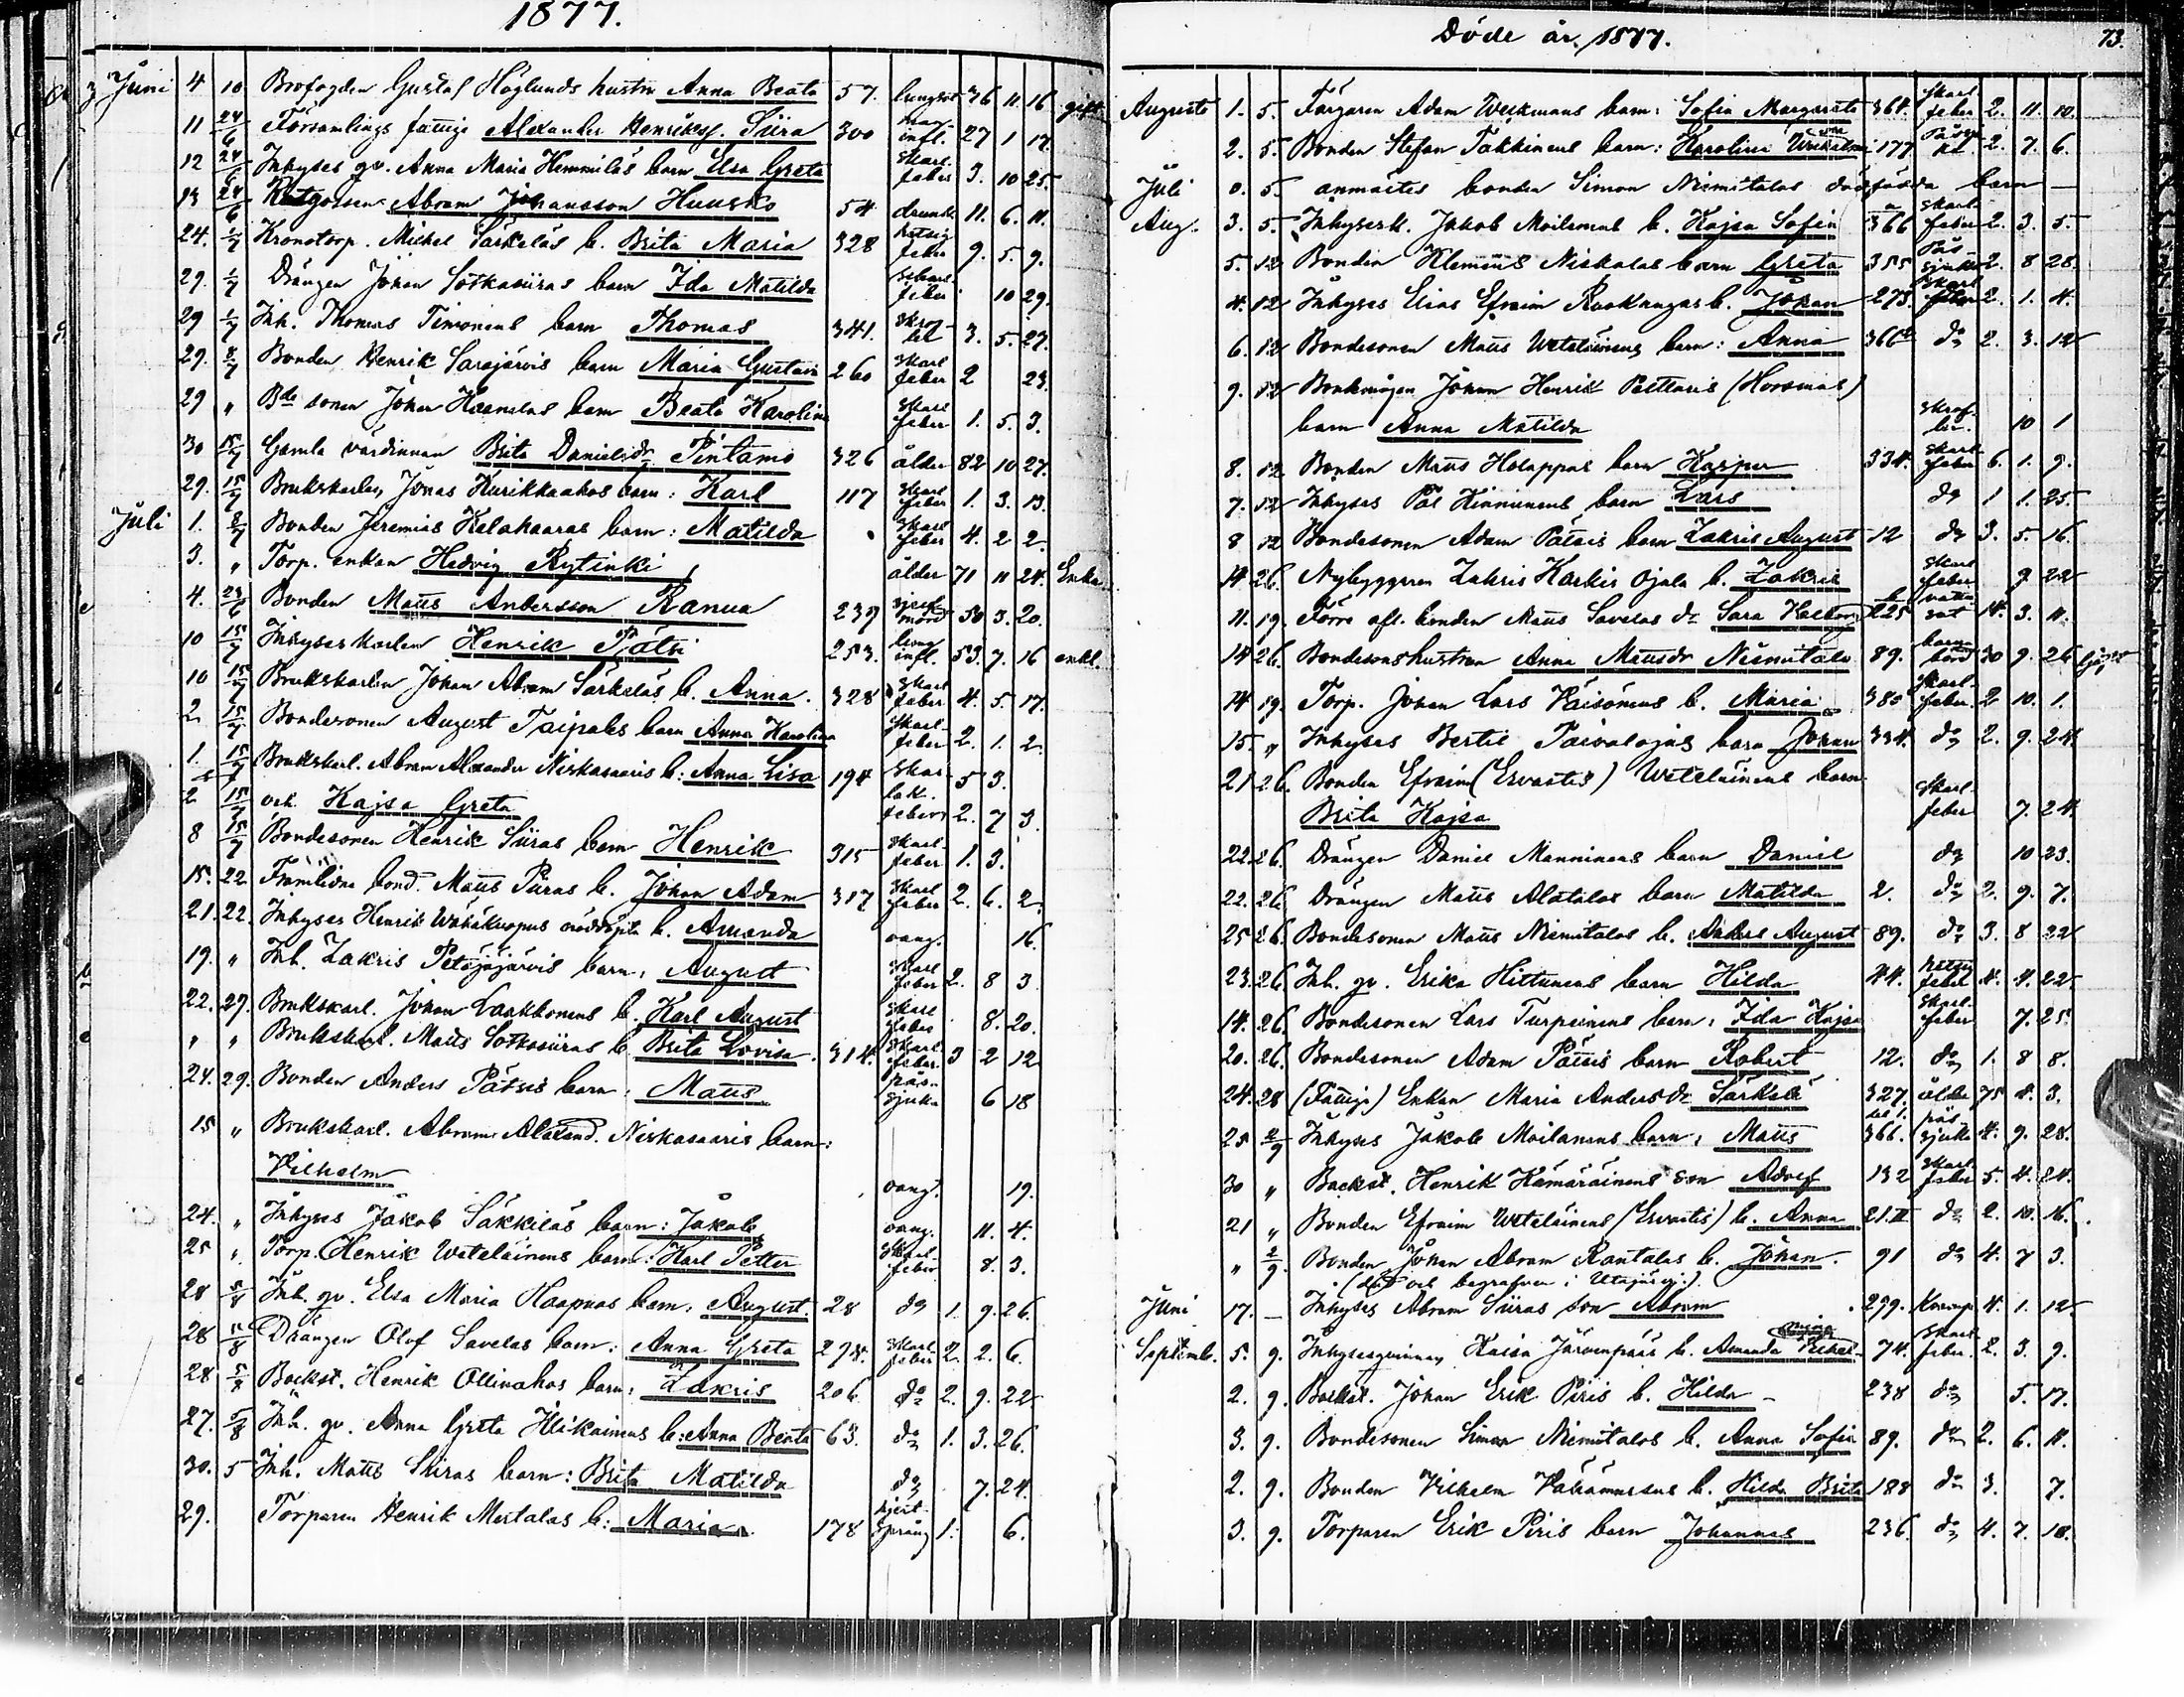 1877.
Juni 4 10 Brofogden Gustaf Höglunds hustru Anna Beata 57. lungsot 36 11. 16 gift
11 24/6 Församlings fattige Alexander Henrikss. Siira 300 infl. 27 1 17.
12 24/6 Inhyses qv. Anna Maria Hemmiläs barn Elsa Greta Skarl. feber 3. 10 25.
13 24/6 Abram Johansson Huusko 54 drunk. 11. 6. 11.
24. 1/7 Kronotorp. Michel Särkeläs b. Brita Maria 328 hetsig feber 9. 5. 9.
29. 1/7 Drängen Johan Sotkasiiras barn Ida Matilda Skarl. feber 10 29.
29 1/7 Inh. Thomas Timonens barn Thomas 341. 3. 5. 27.
29. 8/7 Bonden Henrik Sarajärvis barn Maria Gustava 260 Skarl feber 2 23.
29 " Bde sonen Johan barn Beata Karolina Skarl feber 1. 5. 3.
30 15/7 Gamla värdinnan Brita Danielsdr Pintamo 326 ålder 82 10 27.
29. 15/7 Brukskarlen Jonas Kurikkaahos barn: Karl 117 Skarl feber 1. 3. 13.
Juli 1. 8/7 Bonden Jeremias Kalahaaras barn: Matilda Skarl feber 4. 2 2.
3. " Torp. enkan Hedvig Rytinki ålder 71 11 24. Enka
4. 23/6 Bonden Matts Andersson Ranua 239 sjelf mord 50 3. 20.
10 15/7 Inhyseskarlen Henrik Pätsi 253. infl. 53. 7. 16 enkl.
10 15/7 Brukskarlen Johan Abram Särkeläs b. Anna. 328 Skarl feber 4. 5. 17.
2 15/7 Bondesonen August Taipales barn Anna Karolina Skarl- feber 2. 1. 2.
1. 15/7 Brukskarl. Abram Alexander Niskasaaris b: Anna Lisa 194 5 3.
2 15/7 och Kajsa Greta feber 2. 7 3.
8 15/7 Bondesonen Henrik Siiras barn Henrik 315 Skarl- feber 1. 3.
15. 22. Framlidne bond. Matts Piiras b. Johan Adam 317 Skarl feber 2. 6. 2.
21. 22. Inhyses Henrik b. Amanda oang. 16.
19. " Inh. Zakris Petäjäjärvis barn: August Skarl feber 2. 8 3
22. 29. Brukskarl. Johan Laakkonens b. Karl August Skarl feber 8. 20.
" " Brukskarl. Matts Sotkasiiras b. Brita Lovisa 314. Skarl. feber. 3 2 12
24. 29. Bonden Anders Pätsis barn: Matts pås- sjuka 6 18
15 " Brukskarl. Abram Alexand. Niskasaaris barn:
Vilhelm oang. 19.
24. " Inhyses Jakob Säkkiläs barn: Jakob oang. 11. 4.
25 " Torp. Henrik Wetelainens barn: Karl Petter Skarl. feber 8. 3.
28 5/8 Inh. qv. Elsa Maria Haapuas barn: August. 28 do 1. 9. 26.
28 5/8 Drängen Olof Savelas barn: Anna Greta 294. Skarl. feber 2. 2. 6.
28 5/8 Backst. Henrik Ollinahos barn: Zakris 206 do 2. 9. 22
27. 5/8 Inh. qv. Anna Greta Illikainens b: Anna Beata 63. do 1. 3. 26.
30. 5 Inh. Matts Siiras barn: Brita Matilda do 7. 24.
29. Torparen Henrik Mertalas b: Maria 178 hjert. språng 1. 6.
Döde år. 1877. 73.
Augusti 1. 5. Färgaren Adam Weckmans barn: Sofia Margareta 364. Skarl feber 2. 11. 10.
2. 5. Bonden Stefan Takkinens barn: Karolina 177 2. 7. 6.
Juli 0. 5. anmältes bonden Simon Niemitalos dödfödda barn —
Aug. 3. 5. Inhysesk. Jakob Moilanens b. Kajsa Sofia 366 Skarl feber 2. 3. 5.
5. 12 Bonden Klemens Niskalas barn Greta 355 Pås sjuka 2. 8 28.
4. 12 Inhyses Elias Efraim Ruokangas b. Johan 273. Skarl feber 2. 1. 4.
6. 12 Bondesonen Matts Wetelainens barn: Anna 366 do 2. 3. 12
9. 12 Bondmågen Johan Henrik Pelttaris (Hoosmas)
barn Anna Matilda 10 1
8. 12 Bonden Matts Holappas barn Kasper 334. Skarl feber 6. 1. 9.
7. 12 Inhyses Pål Hinnunens barn Lars do 1 1. 25.
8 12 Bondesonen Adam Pätsis barn Zakris August 12 do 3. 5. 16.
14 26. Nybyggaren Zakris Karkis Ojala b. Zakris Skarl feber 9 22
11. 19. Förre aft. bonden Matts Savelas dr Sara 225 vatten sot 14. 3. 11.
14 26. Bondesonshustrun Anna Mattsdr Niemitalo 89. barns börd 30 9. 26
14 19. Torp. Johan Lars Väisänens b. Maria 385 Skarl. feber. 2 10. 1.
15. " Inhyses Bertil Paivalojas barn Johan 334. do 2. 9. 24.
21 26. Bonden Efraim (Ervastis) Wetelainens barn
Brita Kajsa Skarl. feber 7. 24.
22. 26. Drängen Daniel Manninens barn Daniel do 10 23.
22. 26. Drängen Matts Alatalos barn Matilda 2. do 2. 9. 7.
25 26. Bondesonen Matts Niemitalos b. Anders August 89. do 3. 8 22
23. 26. Inh. qv. Erika Hittunens barn Hilda 44. hetsig feber 4. 4. 22
14. 26. Bondesonen Lars Turpeinens barn: Ida Kajsa Skarl. feber 7. 25.
20. 26. Bondesonen Adam Pätsis barn Robert 12. do 1. 8 8.
24. 28 (Fattige) Enkan Maria Andersdr Särkelä 327. ålder 75 8. 3.
25 2/9 Inhyses Jakob Moilanens barn: Matts 366. pås- sjuka 4. 9. 28.
30 " Backst. Henrik Hämäräinens son Adolf 132 Skarl. feber 5. 4. 24.
21 " Bonden Efraim Wetelainens (Ervastis) b. Anna 21.II do 2. 10. 16.
" 2/9. Bonden Johan Abram Rantalas b. Johan. 91 do 4. 7 3.
(död och begrafven i Utajärvi.)
Juni 17. — Inhyses Abram Siiras son Abram 299. Kramp 4. 1. 12
Septemb. 5. 9. Inhysesqvinnan Kaisa Järvenpääs b. Amanda 74. Skarl feber. 2. 3. 9.
2. 9. Backst. Johan Erik Piris b. Hilda — 238 do 5. 17.
3. 9. Bondesonen Simon Niemitalos b. Anna Sofia 89. do 2. 6. 11.
2. 9. Bonden Vilhelm b. Hilda Brita 188 do 3. 7.
3. 9. Torparen Erik Piris barn Johannes 236. do 4. 7. 18.